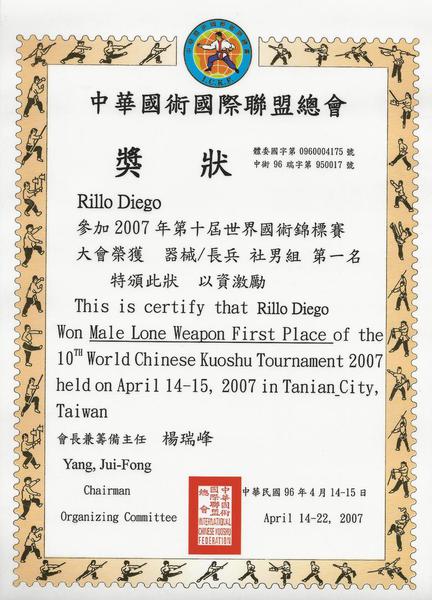 中華國術國際聯盟總會
I.C.K.F.
中華國術國際聯盟總會
體委國字第 0960004175 號
中術 96 瑞字第 950017 號
獎 狀
Rillo Diego
參加 2007 年第十屆世界國術錦標賽
大會榮獲 器械/長兵 社男組 第一名
特頒此狀 以資激勵
This is certify that Rillo Diego
Won Male Lone Weapon First Place of the
10TH World Chinese Kuoshu Tournament 2007
held on April 14-15, 2007 in Tanian City,
Taiwan
會長兼籌備主任 楊瑞峰
Yang, Jui-Fong
Chairman
Organizing Committee
中華國術
國際聯盟
總會
INTERNATIONAL
CHINESE KUOSHU
FEDERATION
中華民國 96 年 4 月 14-15 日
April 14-22, 2007